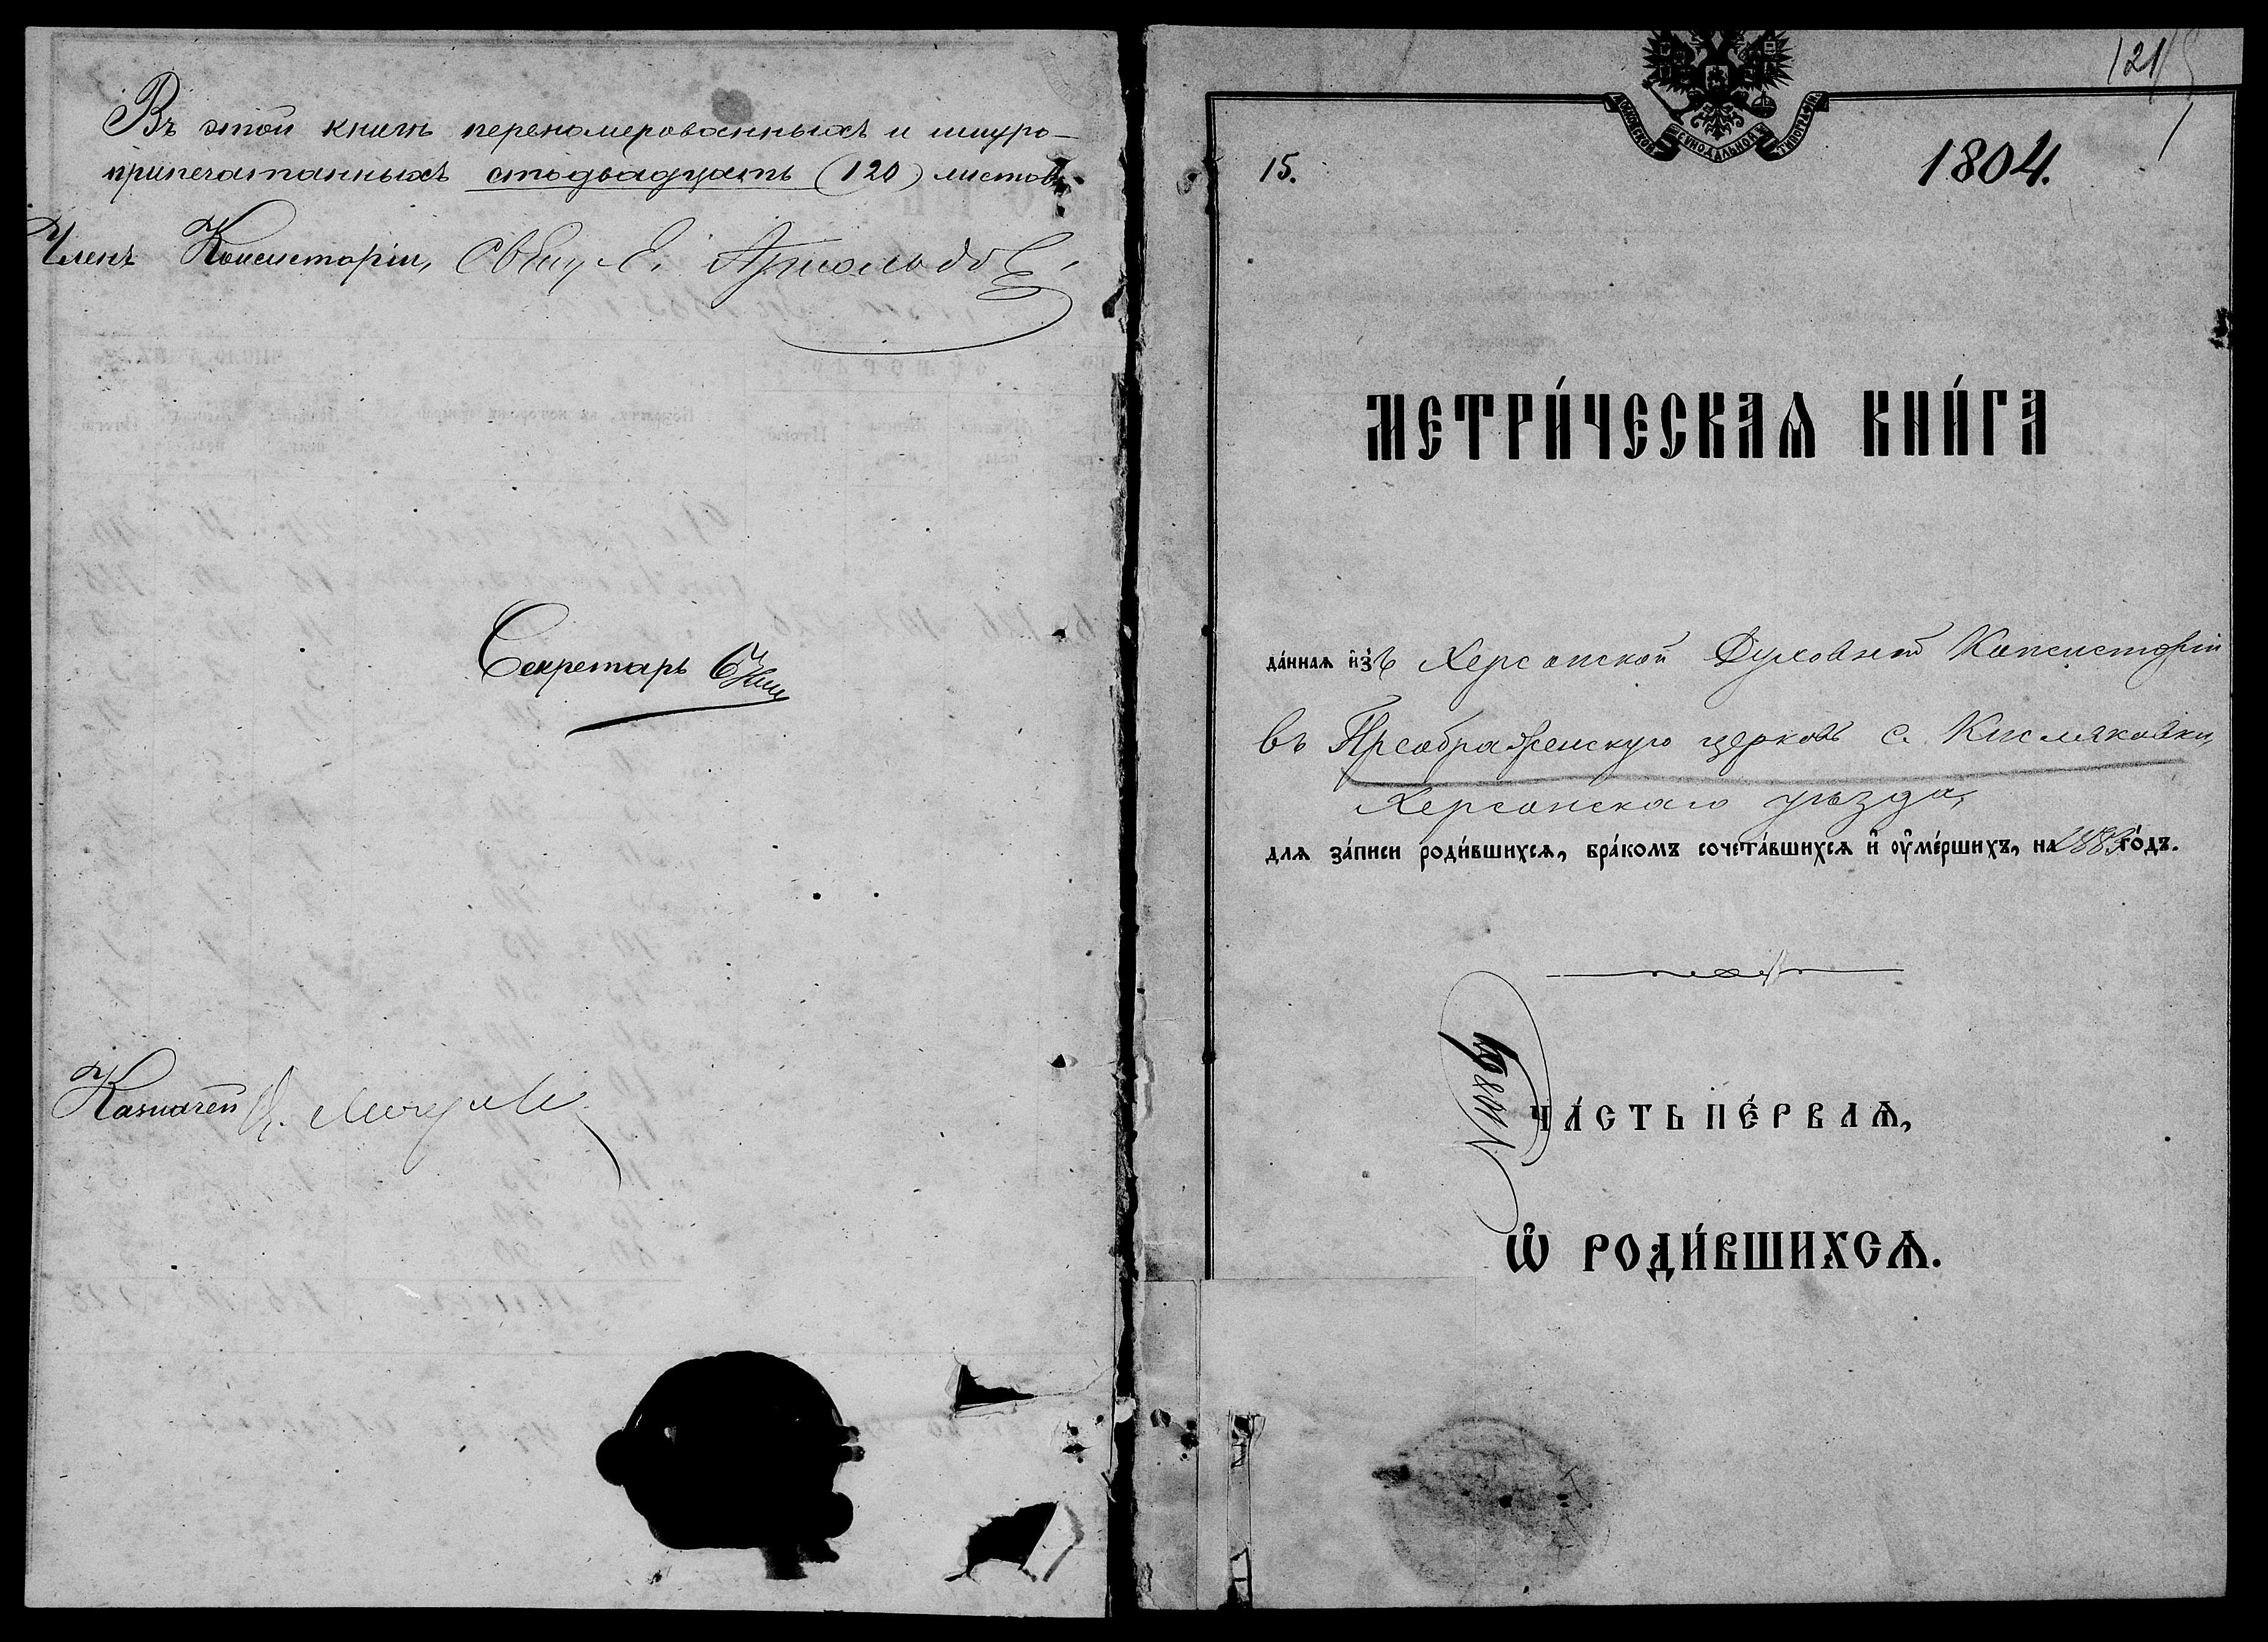 Въ этой книгѣ перенамерованныхъ и шнуро-
припечатанныхъ стодвадцать (120) листовъ.
Членъ Консисторіи, Свящ. Арнольдов
Секретарь
Казначей
121
15.
1804.
МОСКОВСКОЙ СѴНОДАЛЬНОЙ ТИПОГРАФІИ
МЕТРИ́ЧЕСКАѦ КНИ́ГА
да́ннаѧ и҆зъ Херсонской Духовной Консисторіи
въ Преображенскую церковь с. Кисляковки,
Херсонскаго уѣзда,
для за́писи роди́вшихсѧ, бра́комъ сочета́вшихсѧ и҆ ᲂу҆ме́ршихъ, на 1883 го́дъ.
ЧА́СТЬ ПЕ́РВАѦ,
Ѽ РОДИ́ВШИХСѦ.